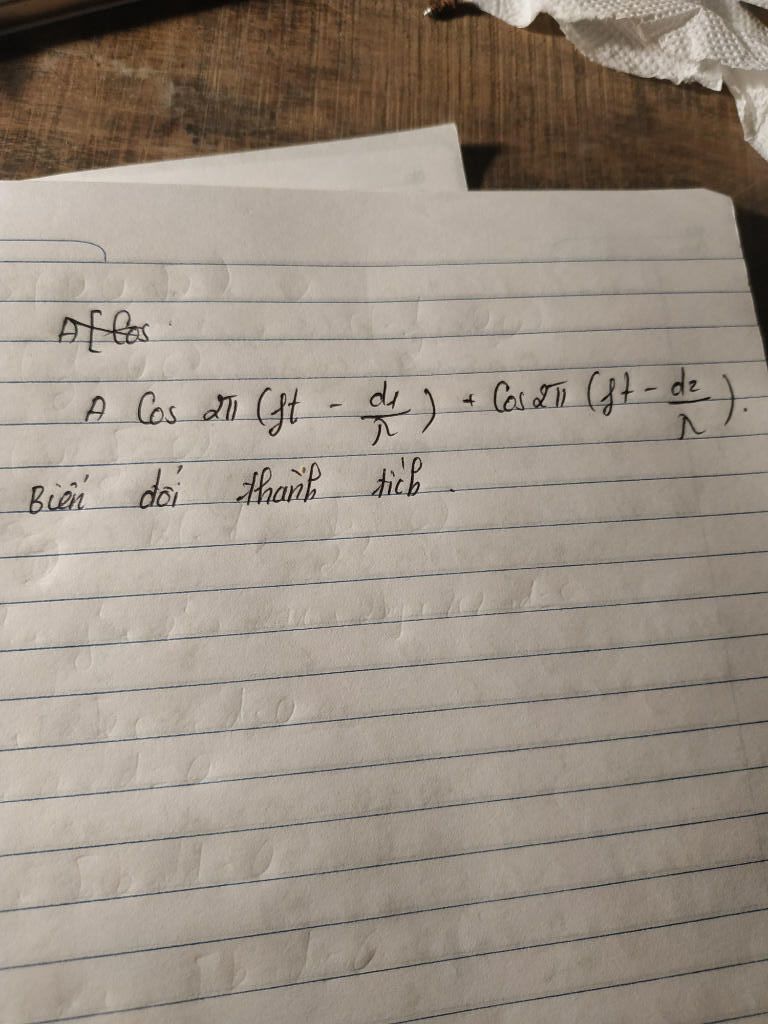 A[Cos
A Cos 2π (ft - d1/λ) + Cos 2π (ft - d2/λ).
Biến đổi thành tích.